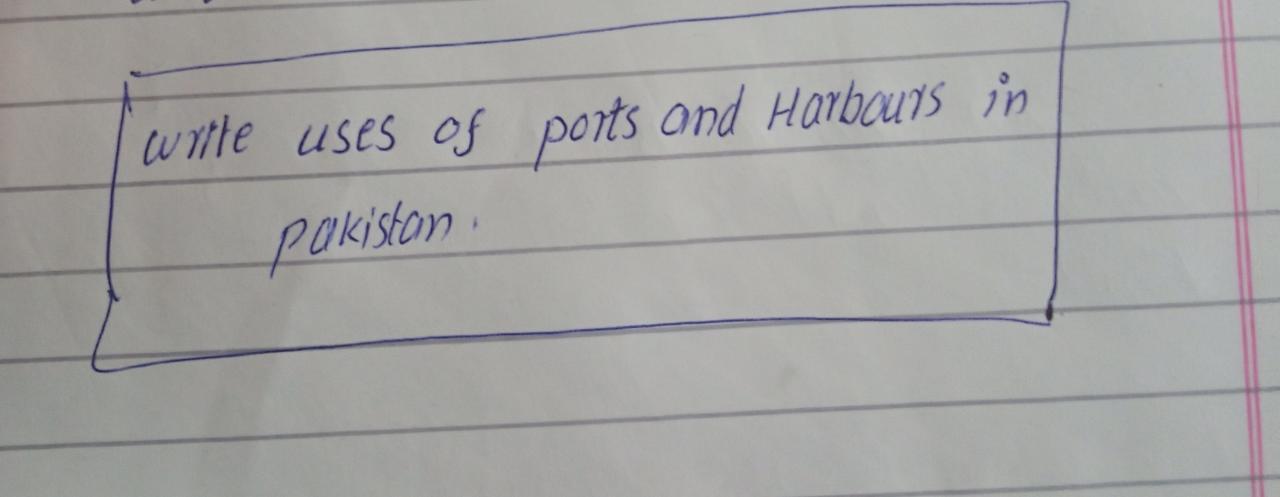 write uses of ports and Harbours in
pakistan.